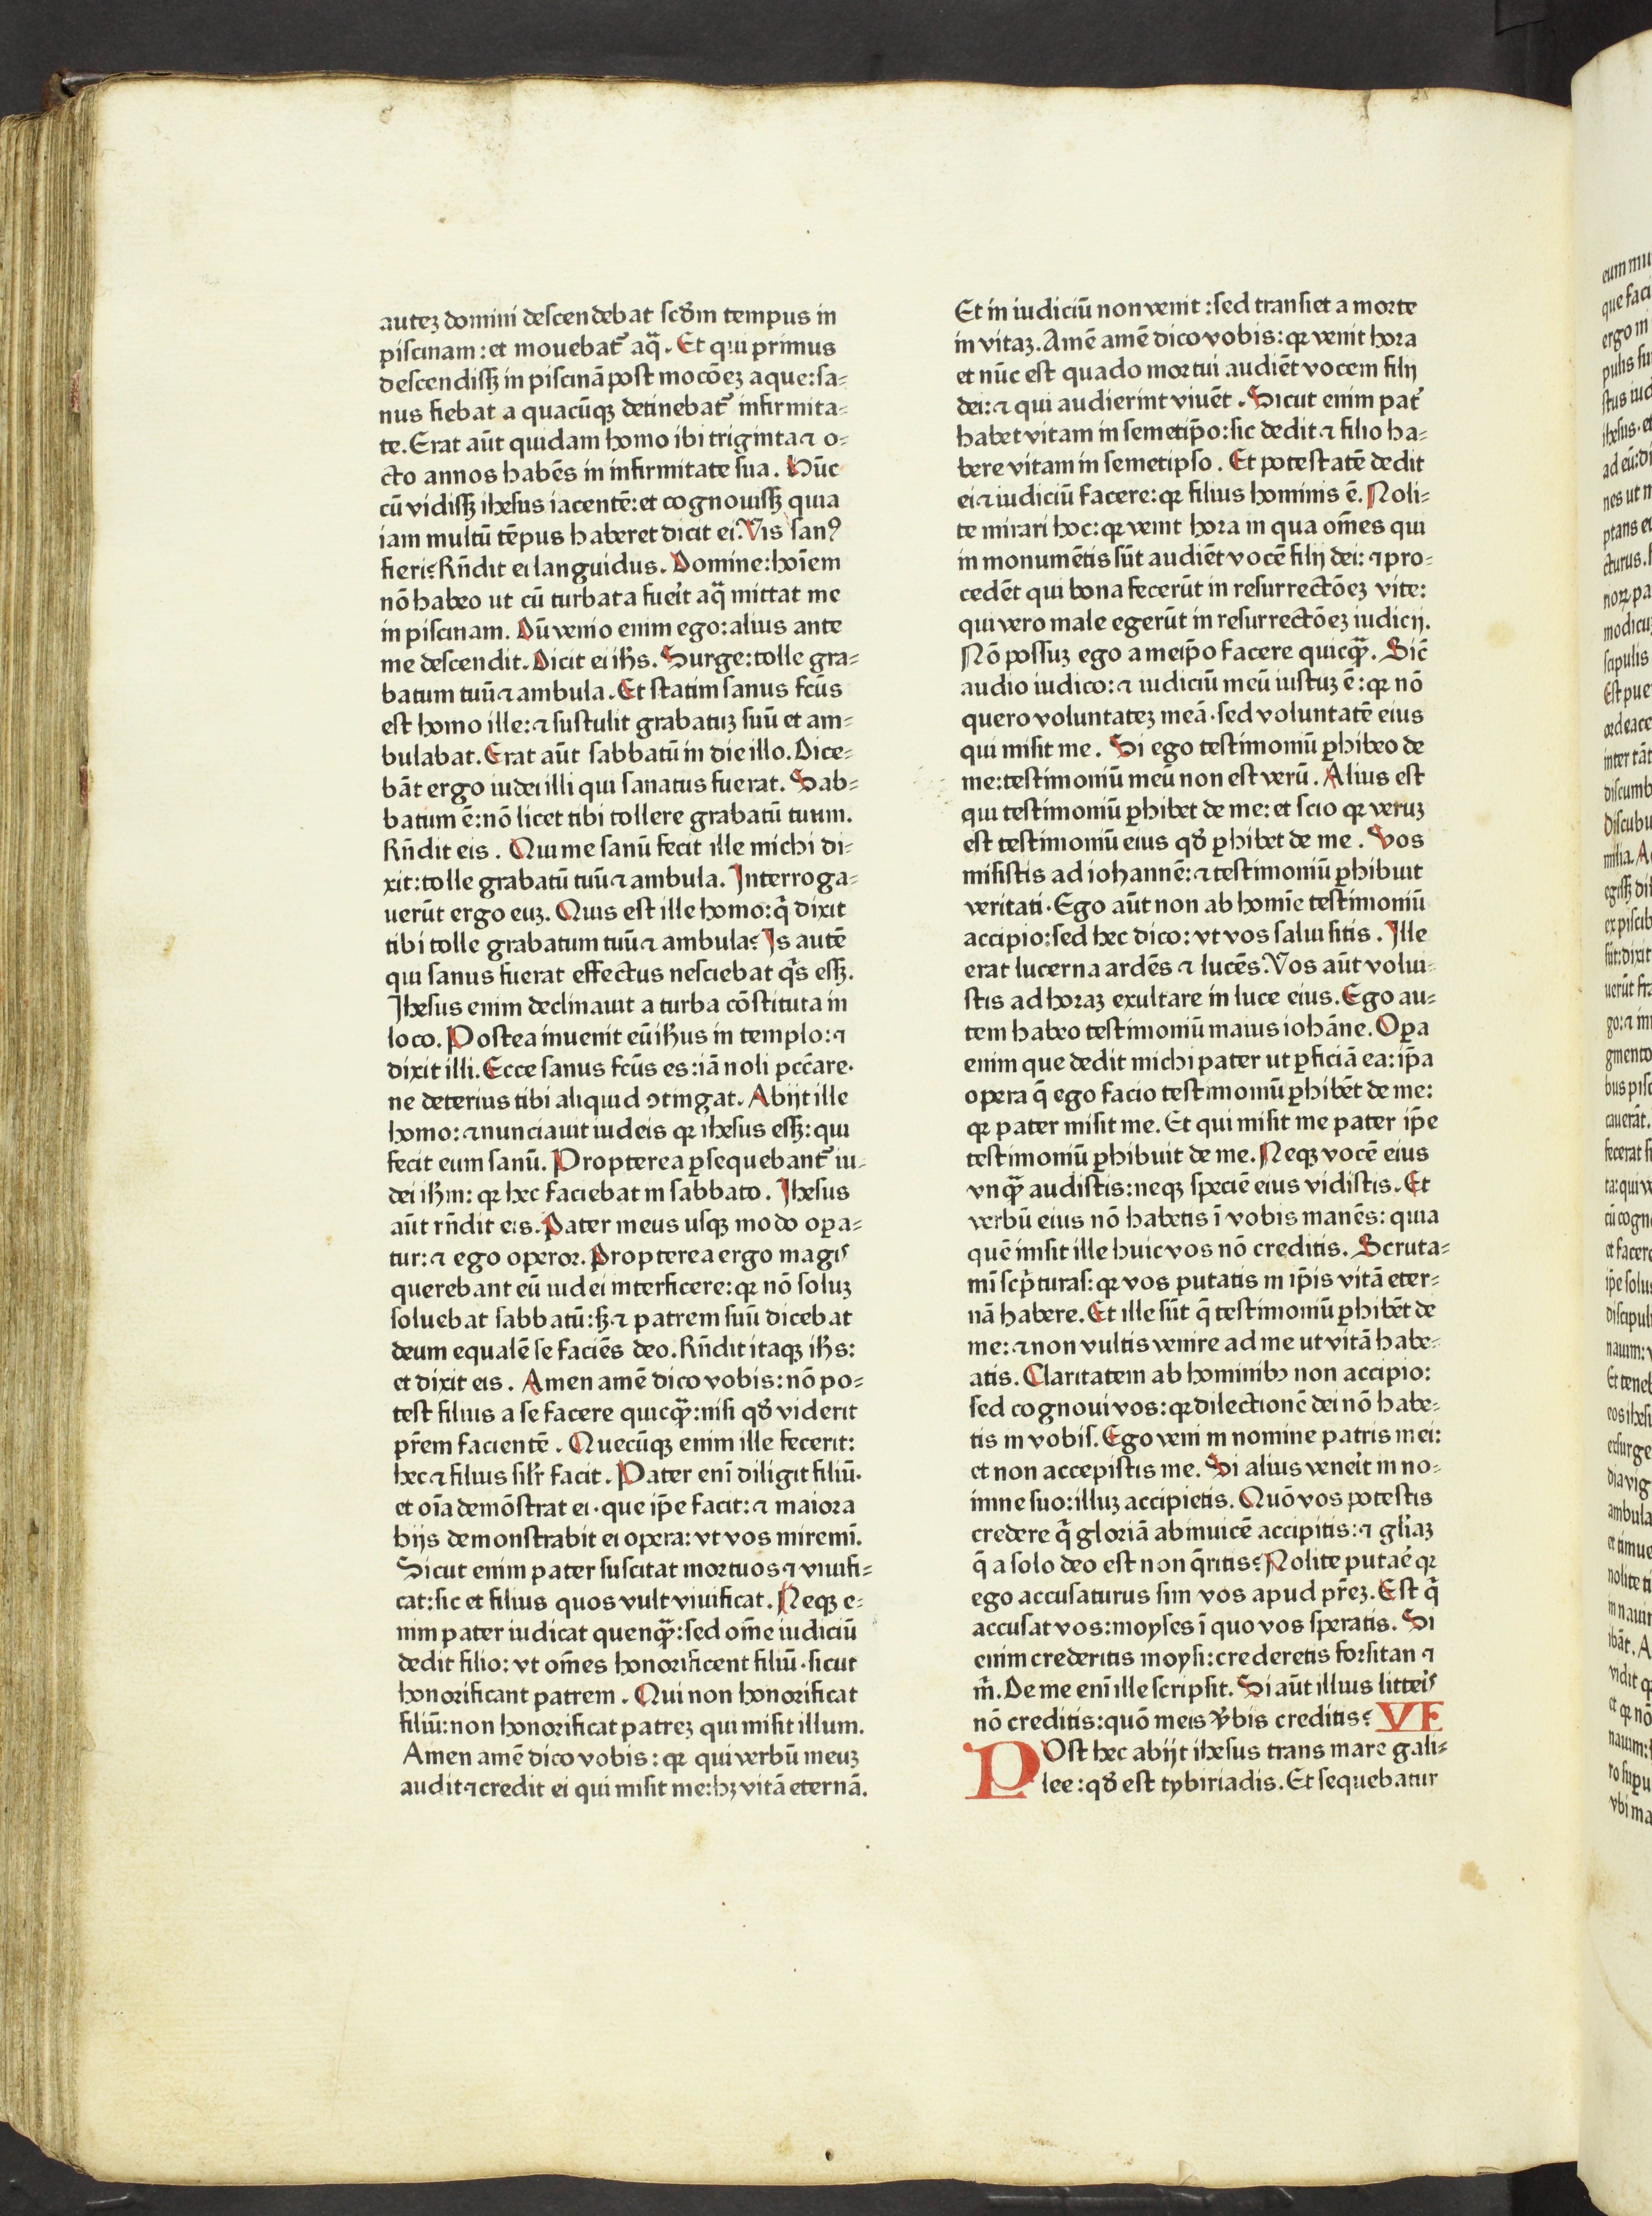 autez domini descendebat scđm tempus in
piscinam: et mouebat᷑ aq̃. Et qui primus
descendissꝫ in piscinā post mocōeꝫ aque: sa⸗
nus fiebat a quacūqꝫ detinebat᷑ infirmita⸗
te. Erat aūt quidam homo ibi triginta ⁊ o⸗
cto annos habēs in infirmitate sua. Hūc
cū vidissꝫ ihesus iacentē: et cognouissꝫ quia
iam multū tēpus haberet dicit ei. Vis sanꝰ
fieri? Rn̄dit ei languidus. Domine: hoīem
nō habeo ut cū turbata fuēit aq̃ mittat me
in piscinam. Dū venio enim ego: alius ante
me descendit. Dicit ei ihs̄. Surge: tolle gra⸗
batum tuū ⁊ ambula. Et statim sanus fcūs
est homo ille: ⁊ sustulit grabatuꝫ suū et am⸗
bulabat. Erat aūt sabbatū in die illo. Dice⸗
bāt ergo iudei illi qui sanatus fuerat. Sab⸗
batum ē: nō licet tibi tollere grabatū tuum.
Rn̄dit eis. Qui me sanū fecit ille michi di⸗
xit: tolle grabatū tuū ⁊ ambula. Interroga⸗
uerūt ergo euꝫ. Quis est ille homo: q̄ dixit
tibi tolle grabatum tuū ⁊ ambula? Is autē
qui sanus fuerat effectus nesciebat q̄s essꝫ.
Ihesus enim declinauit a turba cōstituta in
loco. Postea inuenit eū ihūs in templo: ⁊
dixit illi. Ecce sanus fcūs es: iā noli pccāre.
ne deterius tibi aliquid ↄtingat. Abijt ille
homo: ⁊ nunciauit iudeis ꝙ ihesus essꝫ: qui
fecit eum sanū. Propterea ꝑsequebant᷑ iu⸗
dei ihm̄: ꝙ hec faciebat in sabbato. Ihesus
aūt rn̄dit eis. Pater meus usqꝫ modo oꝑa⸗
tur: ⁊ ego operor. Propterea ergo magis
querebant eū iudei interficere: ꝙ nō soluꝫ
soluebat sabbatū: sꝫ ⁊ patrem suū dicebat
deum equalē se faciēs deo. Rn̄dit itaqꝫ ihs̄:
et dixit eis. Amen amē dico vobis: nō po⸗
test filius a se facere quicq̃ꝫ: nisi qđ viderit
pr̄em facientē. Quecūqꝫ enim ille fecerit:
hec ⁊ filius silr̄ facit. Pater eni diligit filiū.
et oīa demōstrat ei. que ip̄e facit: ⁊ maiora
hijs demonstrabit ei opera: vt vos miremī.
Sicut enim pater suscitat mortuos ⁊ viuifi⸗
cat: sic et filius quos vult viuificat. Neqꝫ e⸗
nim pater iudicat quenq̃ꝫ: sed om̄e iudiciū
dedit filio: vt om̄es honorificent filiū. sicut
honorificant patrem. Qui non honorificat
filiū: non honorificat patreꝫ qui misit illum.
Amen amē dico vobis: ꝙ qui verbū meuꝫ
audit ⁊ credit ei qui misit me: hꝫ vitā eternā.
Et in iudiciū non venit: sed transiet a morte
in vitaꝫ. Amē amē dico vobis: ꝙ venit hora
et nūc est quado mortui audiēt vocem filij
dei: ⁊ qui audierint viuēt. Sicut enim pat᷑
habet vitam in semetip̄o: sic dedit ⁊ filio ha⸗
bere vitam in semetipso. Et potestatē dedit
ei ⁊ iudiciū facere: ꝙ filius hominis ē. Noli⸗
te mirari hoc: ꝙ venit hora in qua om̄es qui
in monumētis sūt audiēt vocē filij dei: ⁊ pro⸗
cedēt qui bona fecerūt in resurrectōeꝫ vite:
qui vero male egerūt in resurrectōeꝫ iudicij.
Nō possuꝫ ego a meip̄o facere quicq̃ꝫ. Sic̄
audio iudico: ⁊ iudiciū meū iustuꝫ ē: ꝙ nō
quero voluntateꝫ meā. sed voluntatē eius
qui misit me. Si ego testimoniū ꝑhibeo de
me: testimoniū meū non est verū. Alius est
qui testimoniū ꝑhibet de me: et scio ꝙ veruꝫ
est testimoniū eius qđ ꝑhibet de me. Vos
misistis ad iohannē: ⁊ testimoniū ꝑhibuit
veritati. Ego aūt non ab homīe testimoniū
accipio: sed hec dico: vt vos salui sitis. Ille
erat lucerna ardēs ⁊ lucēs. Vos aūt volui⸗
stis ad horaꝫ exultare in luce eius. Ego au⸗
tem habeo testimoniū maius iohāne. Oꝑa
enim que dedit michi pater ut ꝑficiā ea: ip̄a
opera q̄ ego facio testimoniū ꝑhibēt de me:
ꝙ pater misit me. Et qui misit me pater ip̄e
testimoniū ꝑhibuit de me. Neqꝫ vocē eius
vnq̃ꝫ audistis: neqꝫ speciē eius vidistis. Et
verbū eius nō habetis ī vobis manēs: quia
quē misit ille huic vos nō creditis. Scruta⸗
mī scp̄turas: ꝙ vos putatis in ip̄is vitā eter⸗
nā habere. Et ille sūt q̄ testimoniū ꝑhibēt de
me: ⁊ non vultis venire ad me ut vitā habe⸗
atis. Claritatem ab hominibꝰ non accipio:
sed cognoui vos: ꝙ dilectionē dei nō habe⸗
tis in vobis. Ego veni in nomine patris mei:
et non accepistis me. Si alius venēit in no⸗
mine suo: illuꝫ accipietis. Quō vos potestis
credere q̄ gloriā ab inuicē accipitis: ⁊ gl̄iaꝫ
q̄ a solo deo est non q̄ritis? Nolite putaē ꝙ
ego accusaturus sim vos apud pr̄eꝫ. Est q̄
accusat vos: moyses ī quo vos speratis. Si
enim crederitis moysi: crederetis forsitan ⁊
m̄. De me eni ille scripsit. Si aūt illius litteis
nō creditis: quō meis v̄bis creditis? VI
POst hec abijt ihesus trans mare gali⸗
lee: qđ est tybiriadis. Et sequebatur